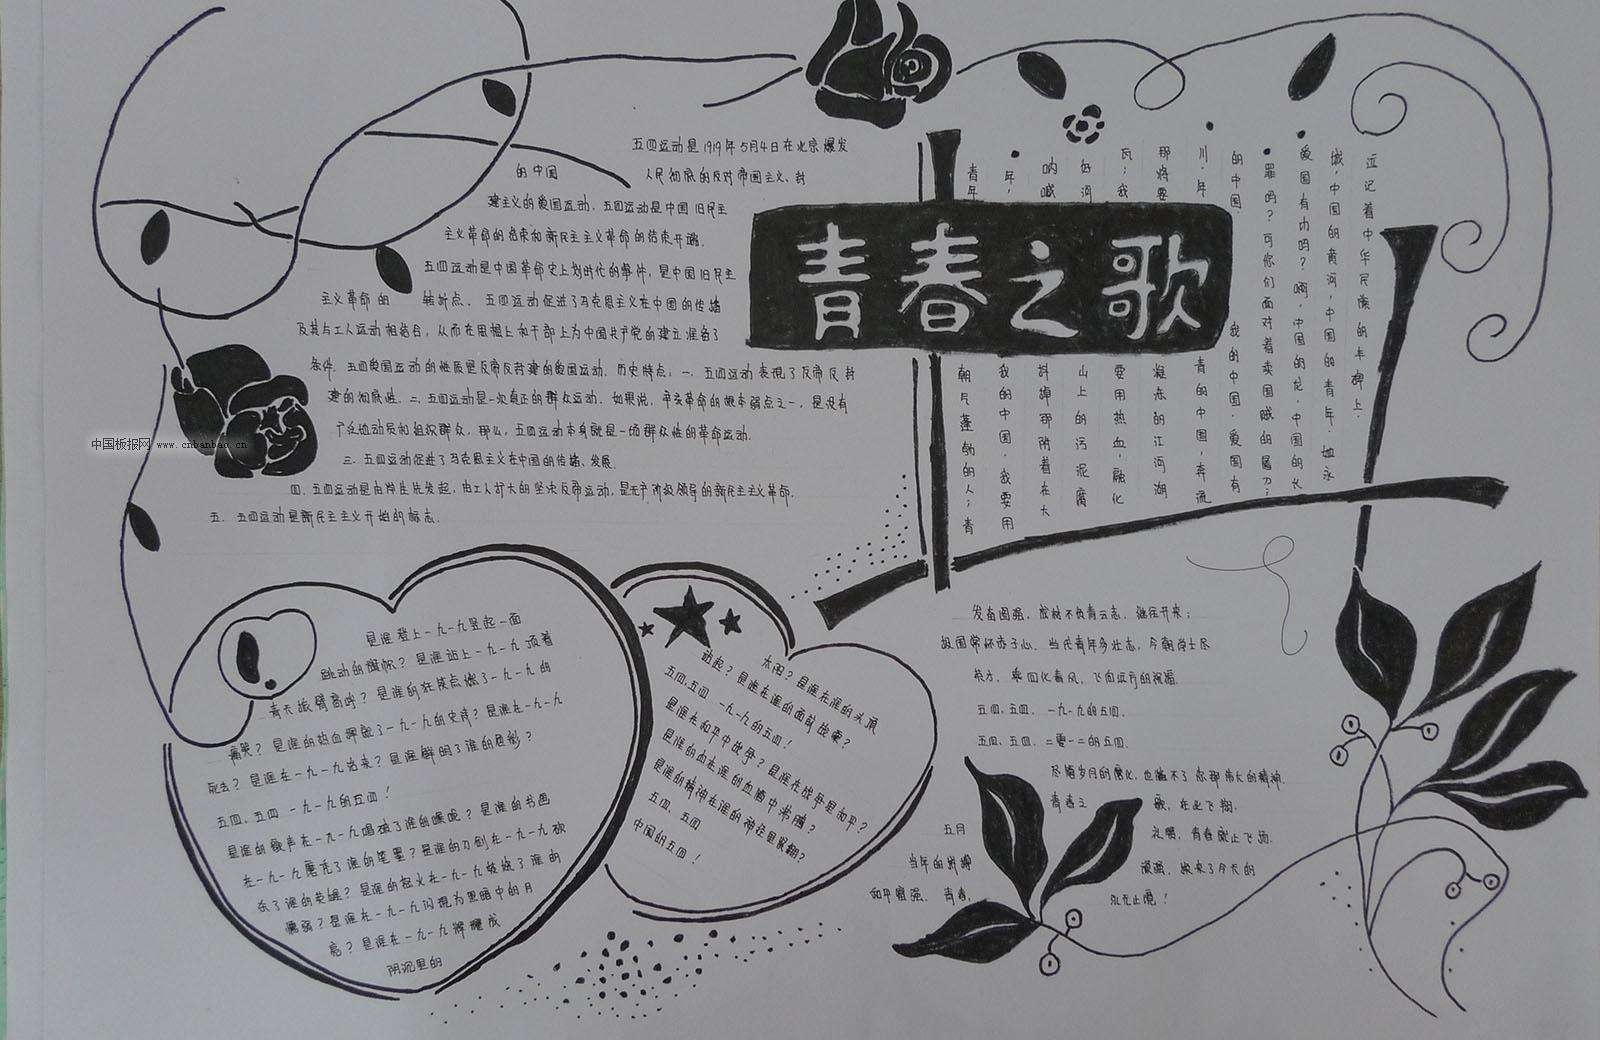 五四运动是1919年5月4日在北京爆发
的中国 人民彻底的反对帝国主义、封
建主义的爱国运动。五四运动是中国旧民主
主义革命的结束和新民主主义革命的结束开端。
五四运动是中国革命史上划时代的事件，是中国旧民主
主义革命的 转折点。五四运动促进了马克思主义在中国的传播
及其与工人运动相结合，从而在思想上和干部上为中国共产党的建立准备了
条件。五四爱国运动的性质是反帝反封建的爱国运动。历史特点：一、五四运动表现了反帝反封
建的彻底性。二、五四运动是一次真正的群众运动。如果说，辛亥革命的根本弱点之一，是没有
广泛地动员和组织群众，那么，五四运动本身就是一场群众性的革命运动。
三、五四运动促进了马克思主义在中国的传播、发展。
四、五四运动是由学生先发起，由工人扩大的坚决反帝运动，是无产阶级领导的新民主主义革命。
五、五四运动是新民主主义开始的标志。
中国板报网 www.cnbanbao.cn
青春之歌
迹记着中华民族的丰碑上.
城，中国的黄河，中国的青年，她永
爱国有力吗？啊，中国的龙，中国的长
罪吗？可你们面对着卖国贼的屠刀；
的中国. 我的中国.爱国有
川.年 青的中国，奔流
那将要 凝冻的江河湖
瓦；我 要用热血，融化
山上的污泥腐
呐喊 抖掉那附着在大
年， 我的中国，我要用
青年 朝气蓬勃的人；青
是谁登上一九一九竖起一面
跳动的旗帜？是谁站上一九一九顶着
青天振臂高呼？是谁的狂笑点燃了一九一九的
痛哭？是谁的热血挥融了一九一九的史诗？是谁在一九一九
死去？是谁在一九一九治来？是谁鲜明了谁的色彩？
五四、五四 一九一九的五四！
是谁的歌声在一九一九唱破了谁的喉咙？是谁的书画
在一九一九磨秃了谁的笔墨？是谁的刀剑在一九一九砍
杀了谁的英雄？是谁的起义在一九一九 了谁的
懦弱？是谁在一九一九闪现为黑暗中的月
亮？是谁在一九一九辉耀成
阴沉里的
太阳？是谁在谁的头顶
动起？是谁在谁的面前结束？
五四、五四 一九一九的五四！
是谁在和平中战争？是谁在战争里和平？
是谁的血在谁的血脑中沸腾？
是谁的精神在谁的神往里飘翻？
五四、五四
中国的五四！
发奋图强，成材不负青云志，继往开来；
报国常怀赤子心，当代青年多壮志，今朝学士尽
英才，乘四化春风，飞向远方的祝福.
五四、五四，一九一九的五四.
五四、五四，二零一二的五四.
尽管岁月的磨化，也磨不了您那伟大的精神.
青春之 歌，在此飞翔.
五月 礼赞，青春就此飞扬.
当年的拼搏 顽强，换来了今天的
和平富强. 青春， 永无止境！